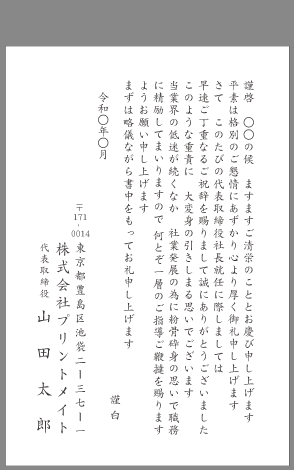 謹啓　〇〇の候　ますますご清栄のこととお慶び申し上げます
平素は格別のご懇情にあずかり心より厚く御礼申し上げます
さて　このたびの代表取締役社長就任に際しましては
早速ご丁重なるご祝辞を賜りまして誠にありがとうございました
このような重責に　大変身の引きしまる思いでございます
当業界の低迷が続くなか　社業発展の為に粉骨砕身の思いで職務
に精励してまいりますので　何とぞ一層のご指導ご鞭撻を賜ります
ようお願い申し上げます
まずは略儀ながら書中をもってお礼申し上げます
謹白
令和〇年〇月
〒171-0014
東京都豊島区池袋二ー三七ー一
株式会社プリントメイト
代表取締役　山田太郎